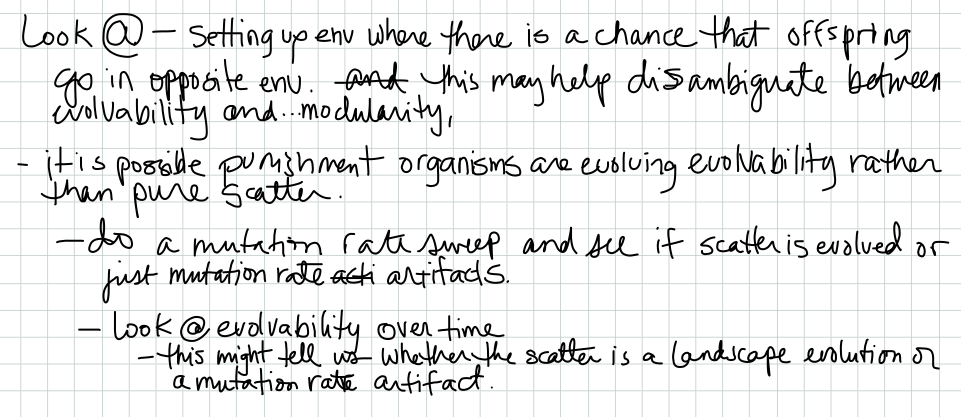 Look @ - Setting up env where there is a chance that offspring
go in opposite env. and this may help disambiguate between
evolvability and...modularity,
- it is possible punishment organisms are evolving evolvability rather
than pure scatter.
- do a mutation rate sweep and see if scatter is evolved or
just mutation rate artifacts.
- look @ evolvability over time
- this might tell us whether the scatter is a landscape evolution or
a mutation rate artifact.